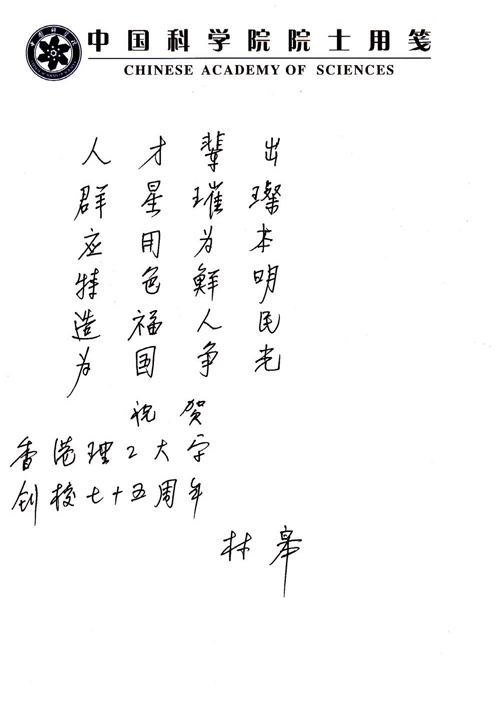 中国科学院院士用笺
CHINESE ACADEMY OF SCIENCES
人才辈出
群星璀璨
应用为本
特色鲜明
造福人民
为国争光
祝贺
香港理工大学
创校七十五周年
林皋